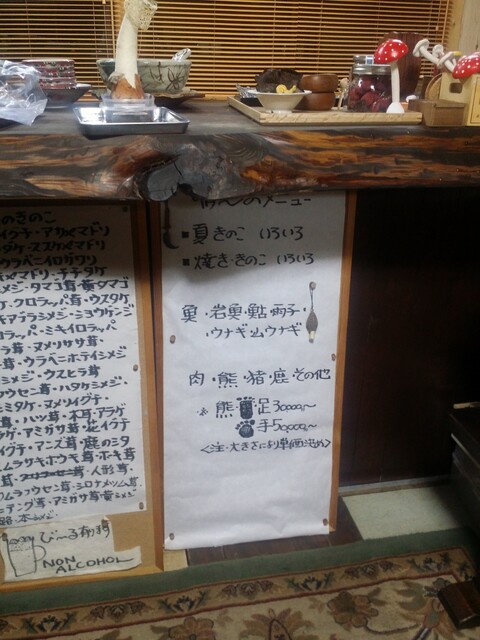 のきのこ
イグチ・アカヤマドリ
タケ・ススケヤマドリ
ウラベニイロガワリ
チチタケ
メジ・タマゴ茸・黄タマゴ
ケ・クロラッパ茸・ウスタケ
キアブラシメジ・ショウゲンジ
ロラッパ・ミキイロラッパ
ラ茸・ヌメリササ茸
茸・ウラベニホテイシメジ
シメジ・ウスヒラ茸
フウセン茸・ハタケシメジ
ミタケ・ヌメリイグチ
茸・ハツ茸・木耳・アラゲ
タケ・アミガサ茸・花イグチ
イグチ・アンズ茸・鹿のシタ
ムラサキホウキ茸・ホキ茸
人形茸
ムラフウセン茸・シロナメツムタケ
ーテング茸・アミガサ茸・黄シメジ
本シメジ
びーる有り〼
NON
ALCOHOL
のメニュー
■夏きのこ いろいろ
■焼ききのこ いろいろ
魚・岩魚・鮎・雨子・
ウナギ・山ウナギ
肉・熊・猪・鹿 その他
※熊 足30000〜
手50000〜
<注・大きさにより単価決め>